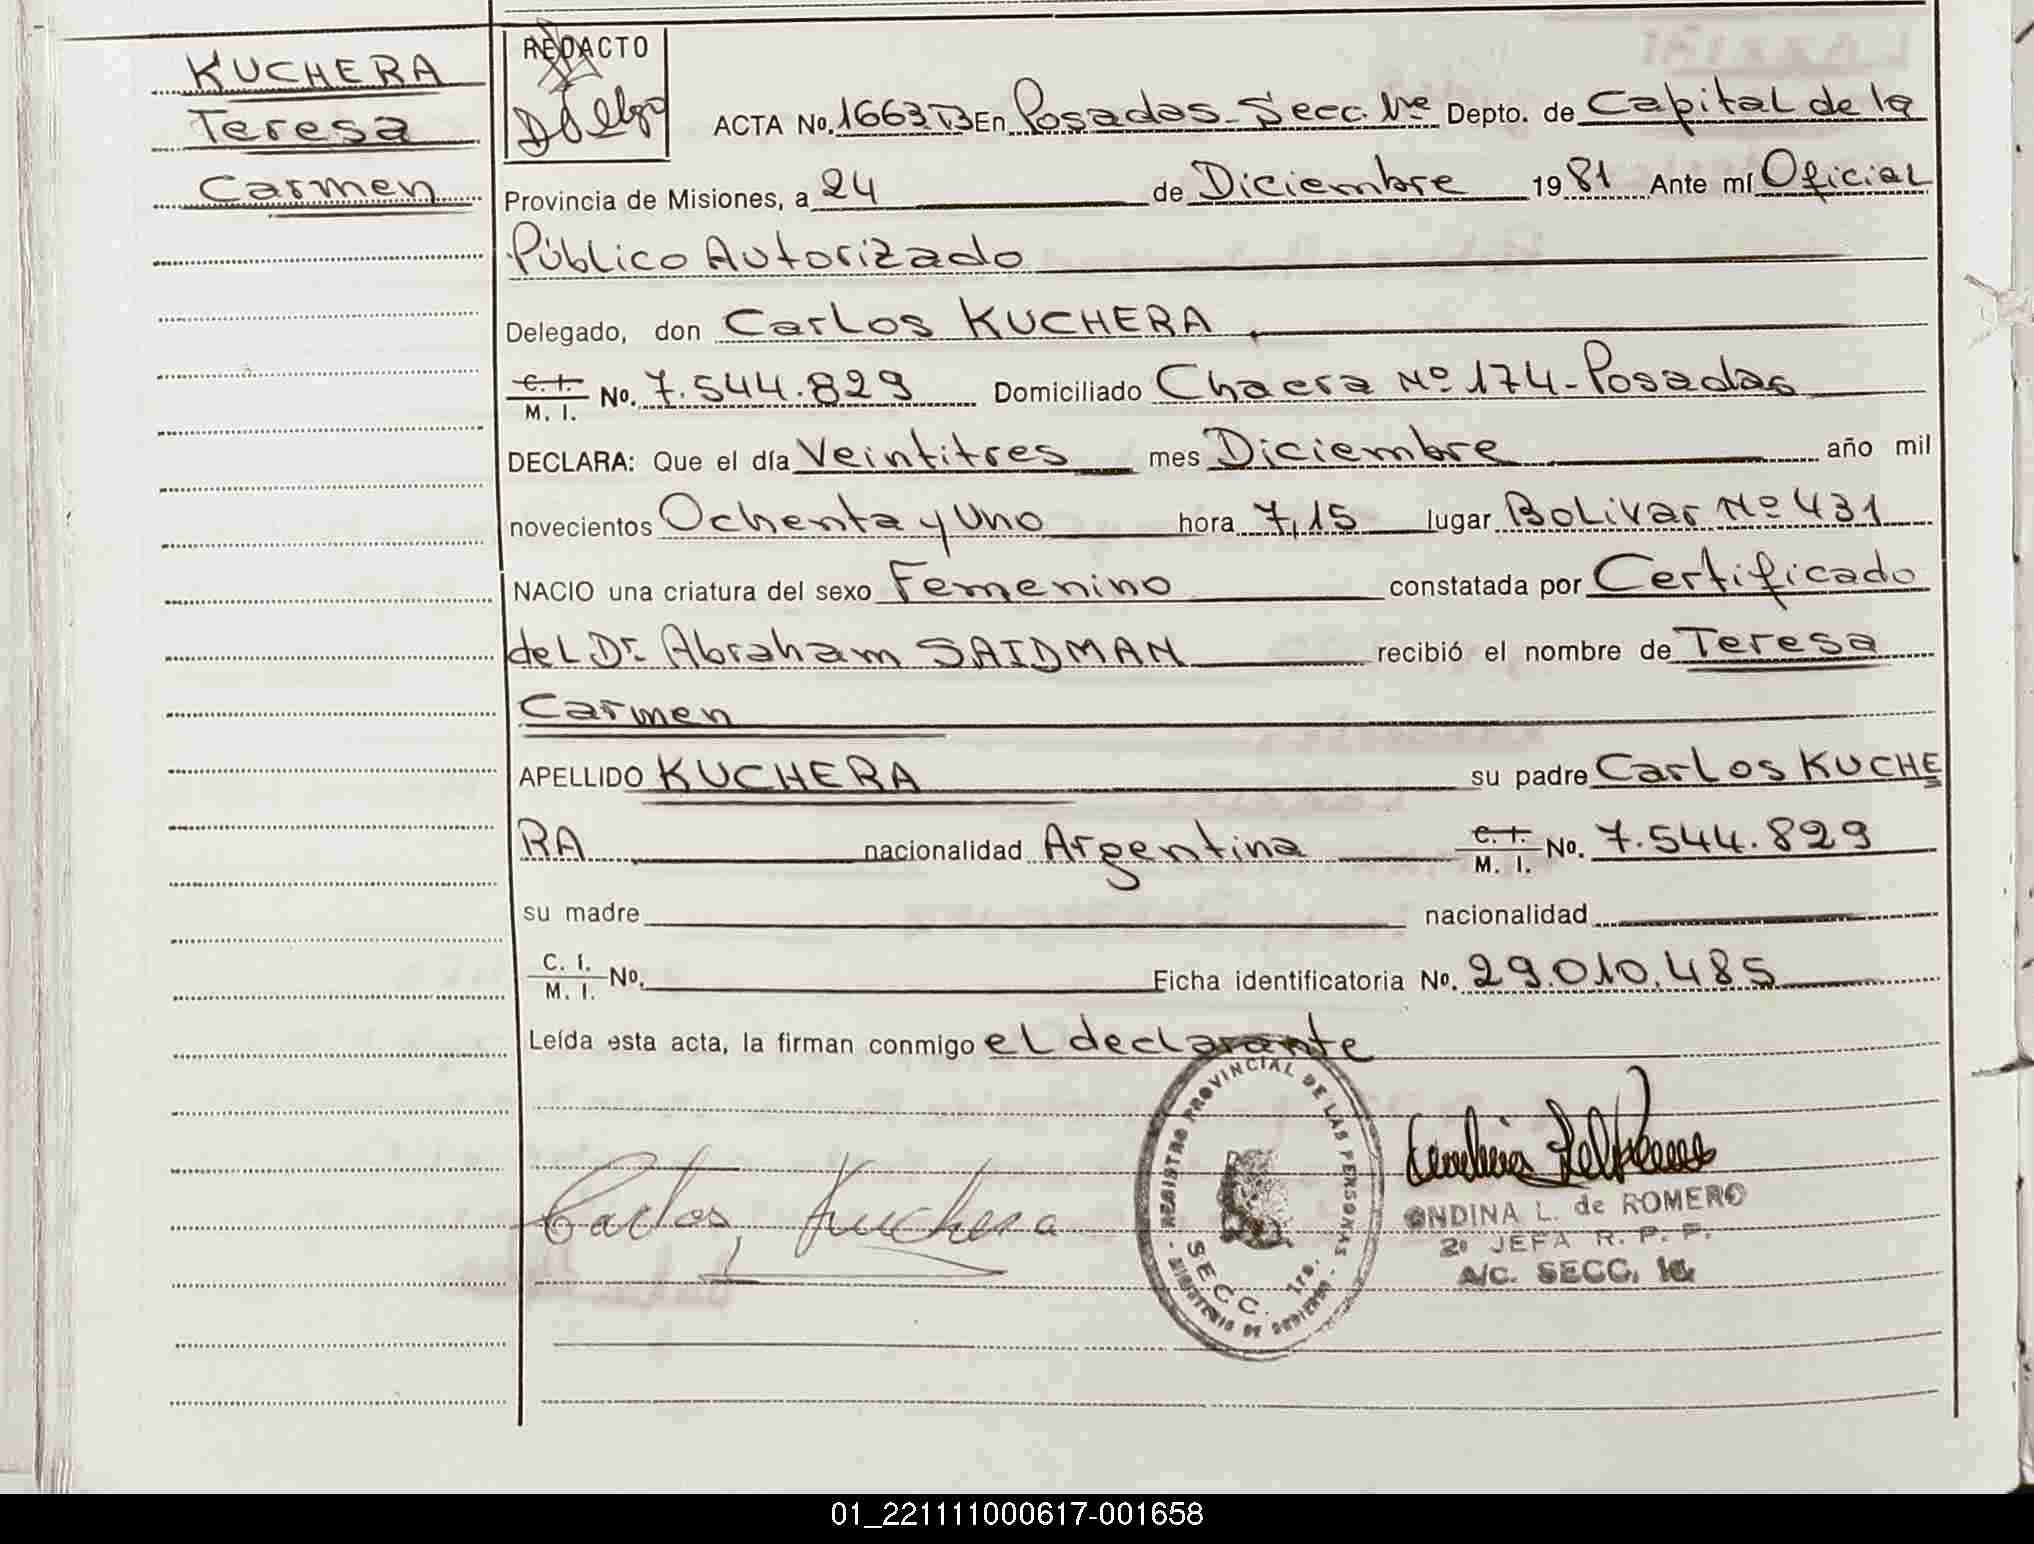 KUCHERA
Teresa
Carmen
REDACTO
ACTA No. 1663 En Posadas - Secc. 1ra Depto. de Capital de la
Provincia de Misiones, a 24 de Diciembre 1981 Ante mí Oficial
Público Autorizado
Delegado, don Carlos KUCHERA,
C. I. M. I. No. 7.544.829 Domiciliado Chacra Nº 174 - Posadas
DECLARA: Que el día Veintitres mes Diciembre año mil
novecientos Ochenta y Uno hora 7,15 lugar Bolivar Nº 431
NACIO una criatura del sexo Femenino constatada por Certificado
del Dr. Abraham SAIDMAN recibió el nombre de Teresa
Carmen
APELLIDO KUCHERA su padre Carlos KUCHE
RA nacionalidad Argentina C. I. M. I. No. 7.544.829
su madre nacionalidad
C. I. M. I. No. Ficha identificatoria No. 29.010.485
Leída esta acta, la firman conmigo el declarante
Carlos Kuchera
REGISTRO PROVINCIAL DE LAS PERSONAS
SECC. 1ra.
- MINISTERIO DE GOBIERNO -
ONDINA L. de ROMERO
2º JEFA R. P. P.
A/C. SECC. 1ª
01_221111000617-001658